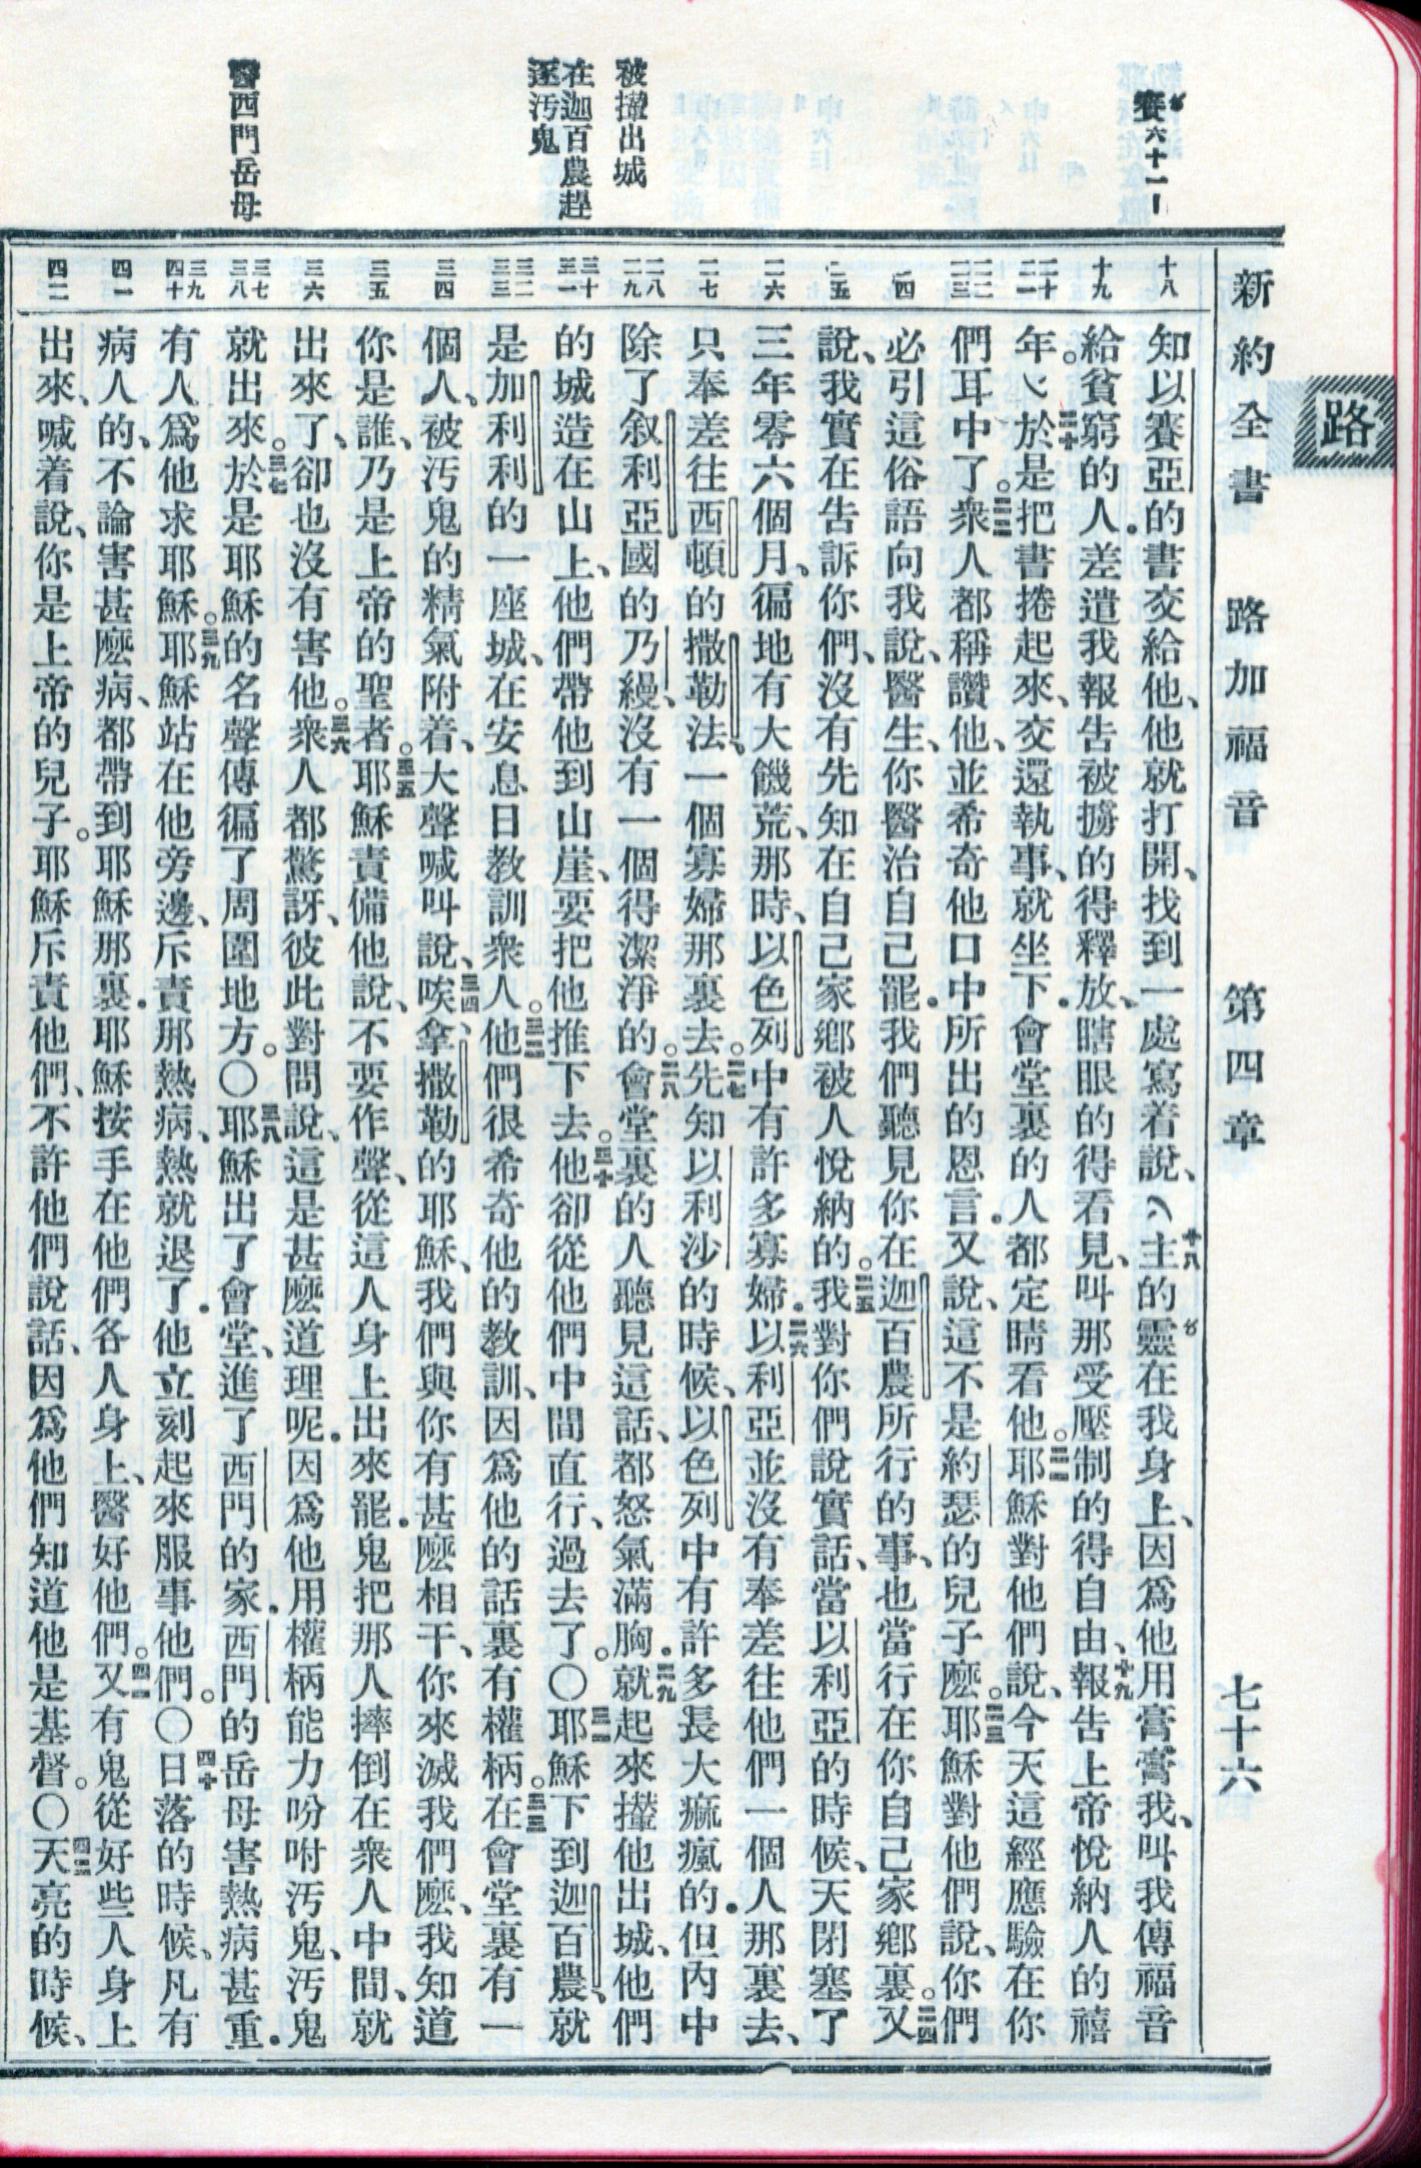 路
新約全書 路加福音 第四章 七十六
賽六十一1
被攆出城
在迦百農趕
逐汚鬼
醫西門岳母
十八
十九
二十
二一
二二
二三
二四
二五
二六
二七
二八
二九
三十
三一
三二
三三
三四
三五
三六
三七
三八
三九
四十
四一
四二
知以賽亞的書交給他、他就打開、找到一處寫着說、︵十八主的靈在我身上、因爲他用膏膏我、叫我傳福音
給貧窮的人.差遣我報告被擄的得釋放、瞎眼的得看見、叫那受壓制的得自由、十九報告上帝悅納人的禧
年。︶二十於是把書捲起來、交還執事、就坐下.會堂裏的人都定睛看他。二一耶穌對他們說、今天這經應驗在你
們耳中了。二二衆人都稱讚他、並希奇他口中所出的恩言.又說、這不是約瑟的兒子麼。二三耶穌對他們說、你們
必引這俗語向我說、醫生、你醫治自己罷.我們聽見你在迦百農所行的事、也當行在你自己家鄉裏。二四又
說、我實在告訴你們、沒有先知在自己家鄉被人悅納的。二五我對你們說實話、當以利亞的時候、天閉塞了
三年零六個月、徧地有大饑荒、那時、以色列中有許多寡婦.二六以利亞並沒有奉差往他們一個人那裏去、
只奉差往西頓的撒勒法、一個寡婦那裏去。二七先知以利沙的時候、以色列中有許多長大痲瘋的.但內中
除了叙利亞國的乃縵、沒有一個得潔淨的。二八會堂裏的人聽見這話、都怒氣滿胸.二九就起來攆他出城、他們
的城造在山上、他們帶他到山崖、要把他推下去。三十他卻從他們中間直行、過去了。〇三一耶穌下到迦百農、就
是加利利的一座城、在安息日教訓衆人。三二他們很希奇他的教訓、因爲他的話裏有權柄。三三在會堂裏有一
個人、被汚鬼的精氣附着、大聲喊叫說、三四唉、拿撒勒的耶穌、我們與你有甚麼相干、你來滅我們麼、我知道
你是誰、乃是上帝的聖者。三五耶穌責備他說、不要作聲、從這人身上出來罷.鬼把那人摔倒在衆人中間、就
出來了、卻也沒有害他。三六衆人都驚訝、彼此對問說、這是甚麼道理呢.因爲他用權柄能力吩咐汚鬼、汚鬼
就出來。三七於是耶穌的名聲傳徧了周圍地方。〇三八耶穌出了會堂、進了西門的家.西門的岳母害熱病甚重.
有人爲他求耶穌。三九耶穌站在他旁邊、斥責那熱病、熱就退了.他立刻起來服事他們。〇四十日落的時候、凡有
病人的、不論害甚麼病、都帶到耶穌那裏.耶穌按手在他們各人身上、醫好他們。四一又有鬼從好些人身上
出來、喊着說、你是上帝的兒子。耶穌斥責他們、不許他們說話、因爲他們知道他是基督。〇四二天亮的時候、